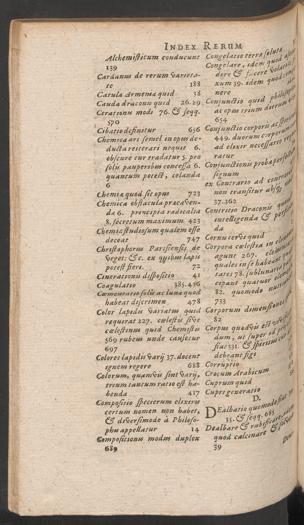 INDEX RERUM
Alchemisticum conducunt
139
Cardanus de rerum varieta-
te 188
Carula Armenia quid 18
Cauda draconis quid 26.29
Cerationis modi 76. & seqq.
570
Cibatio definitur 656
Chemica ars semel in opere de-
ducta reiterari nequit 6.
obscurè cur tradatur 5. pro
solis pauperibus concessa 6.
quantum potest, celanda
6
Chemia quid sit opus 723
Chemica obstacula praecaven-
da 6. principia radicalia
8. secretum maximum 423
Chemiae studiosum qualem esse
deceat 747
Christophorus Parisiensis, de
& c. ex quibus lapis
potest fieri. 72
Cinerationis dispositio 41
Coagulatio 385.416
lunae quid
habeat discrimen 478
Color lapidis variatus quid
requirat 227.
coelestinus quid Chemistis
569 rubeus unde causetur
697
Colores lapidis varij 37. docent
ignem regere 618
Colorum, quamvis sint varij,
trium tantum ratio est ha-
benda 417
Compositio specierum elixeris
certum nomen non habet,
& diversimodè à Philoso-
phis appellatur 14
Compositionis modus duplex
689
Congelatio terra soluta
Congelare, idem quod
dere & facere
xum 39. idem quod
nere
Conjunctio quid philosophis
ac opus trium dierum
654
Conjunctio corporis
449. duorum corporum
ad elixir necessaria
ratur
Conjunctionis proba
signum
ex Contrario ad contrarium
non transitur absque
37.362
Contritio Draconis quomodo
intelligenda &
da
Cornu cervi quid
Corpora coelestia in
agunt 267.
quales in se habeant
tates 78. sublunaria
cipant quatuor
82. quomodo
733
Corporum dimensiones
82
Corpus quodvis est
dum, ut super id
fiat 331. & spiritus
debeant figi
Corruptio
Crocum Arabicum
Cuprum quid
Cupri generatio
D.
DEalbatio quomodo fiat
35. & seqq. 685
Dealbare & rubificare
quod calcinare &
39